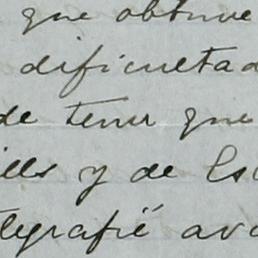 que obtuve
dificultad
de tener que
ills y de Es
tegrafié ava